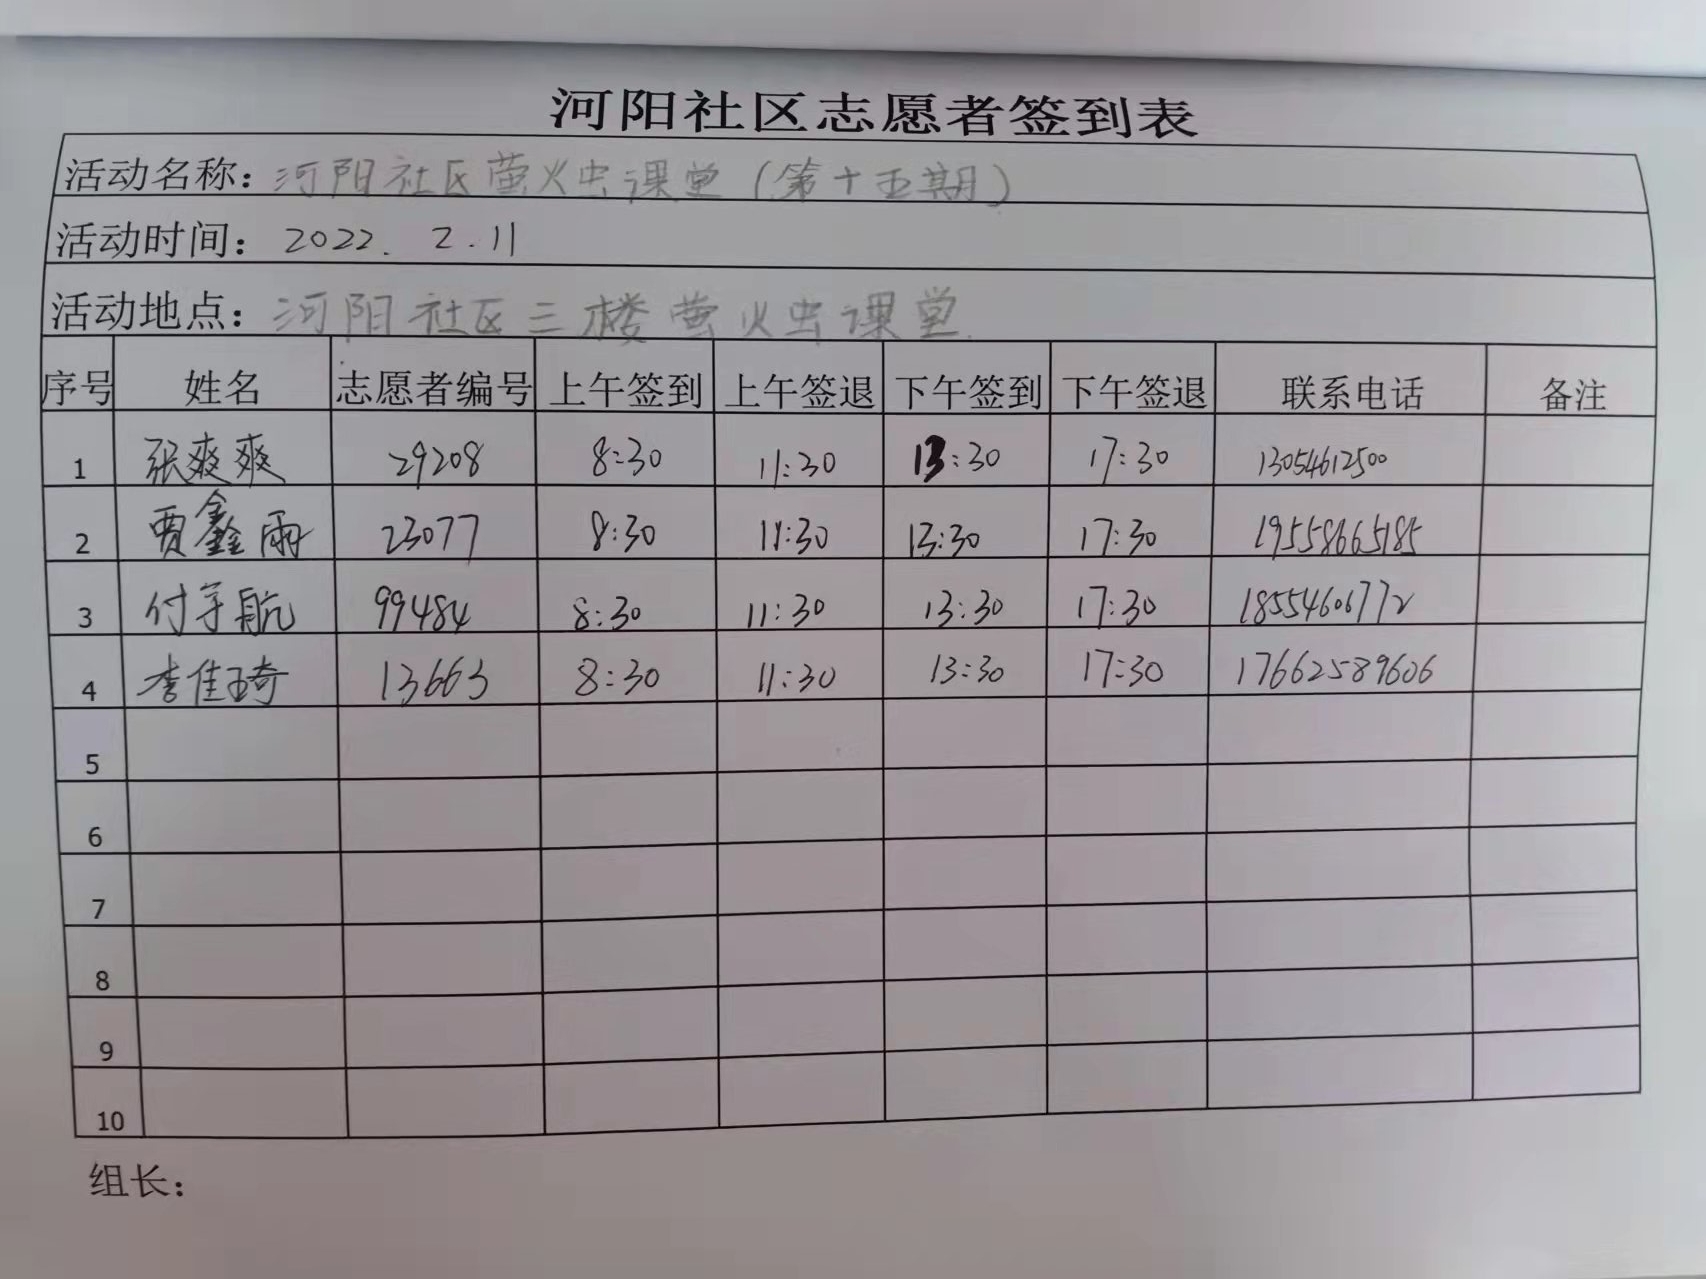 河阳社区志愿者签到表
活动名称：河阳社区萤火虫课堂（第十五期）
活动时间：2022.2.11
活动地点：河阳社区三楼萤火虫课堂
序号 姓名 志愿者编号 上午签到 上午签退 下午签到 下午签退 联系电话 备注
1 张爽爽 29208 8:30 11:30 13:30 17:30 13054612500
2 贾鑫雨 23077 8:30 11:30 13:30 17:30 19558665185
3 付宇航 99484 8:30 11:30 13:30 17:30 18554606772
4 李佳琦 13663 8:30 11:30 13:30 17:30 17662589606
5
6
7
8
9
10
组长：